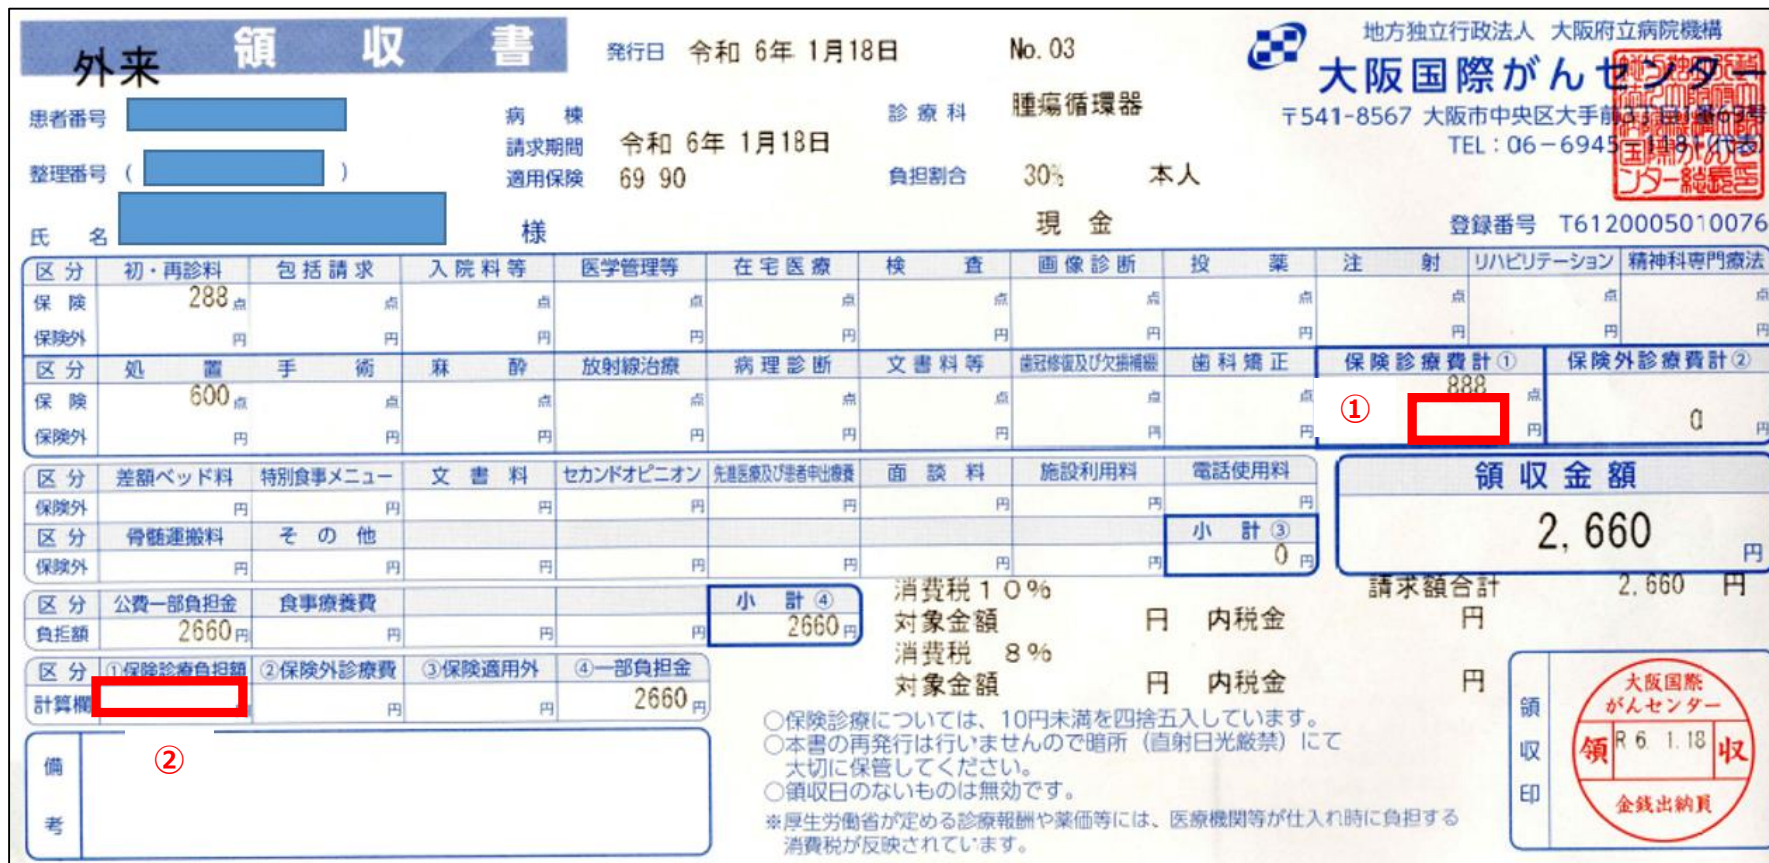 外来 領収書
発行日 令和 6年 1月18日 No.03
地方独立行政法人 大阪府立病院機構
大阪国際がんセンター
〒541-8567 大阪市中央区大手前
TEL:06-6945-1181(代表)
患者番号 病棟 診療科 腫瘍循環器
請求期間 令和 6年 1月18日
整理番号 ( ) 適用保険 69 90 負担割合 30% 本人
氏名 様 現金 登録番号 T6120005010076
区分 初・再診料 包括請求 入院料等 医学管理等 在宅医療 検査 画像診断 投薬 注射 リハビリテーション 精神科専門療法
保険 288点 点 点 点 点 点 点 点 点 点 点
保険外 円 円 円 円 円 円 円 円 円 円 円
区分 処置 手術 麻酔 放射線治療 病理診断 文書料等 歯冠修復及び欠損補綴 歯科矯正 保険診療費計① 保険外診療費計②
保険 600点 点 点 点 点 点 点 点 888点
①
保険外 円 円 円 円 円 円 円 円 円 0円
区分 差額ベッド料 特別食事メニュー 文書料 セカンドオピニオン 先進医療及び患者申出療養 面談料 施設利用料 電話使用料 領収金額
保険外 円 円 円 円 円 円 円 円
区分 骨髄運搬料 その他 小計③ 2,660円
保険外 円 円 円 円 円 円 円 0円
消費税10% 請求額合計 2,660円
区分 公費一部負担金 食事療養費 小計④
負担額 2660円 円 円 円 2660円
対象金額 円 内税金 円
消費税 8%
区分 ①保険診療負担額 ②保険外診療費 ③保険適用外 ④一部負担金
計算欄 円 円 2660円
対象金額 円 内税金 円
②
備考
○保険診療については、10円未満を四捨五入しています。
○本書の再発行は行いませんので暗所(直射日光厳禁)にて
大切に保管してください。
○領収日のないものは無効です。
※厚生労働省が定める診療報酬や薬価等には、医療機関等が仕入れ時に負担する
消費税が反映されています。
領収印
大阪国際
がんセンター
領 R 6. 1.18 収
金銭出納員